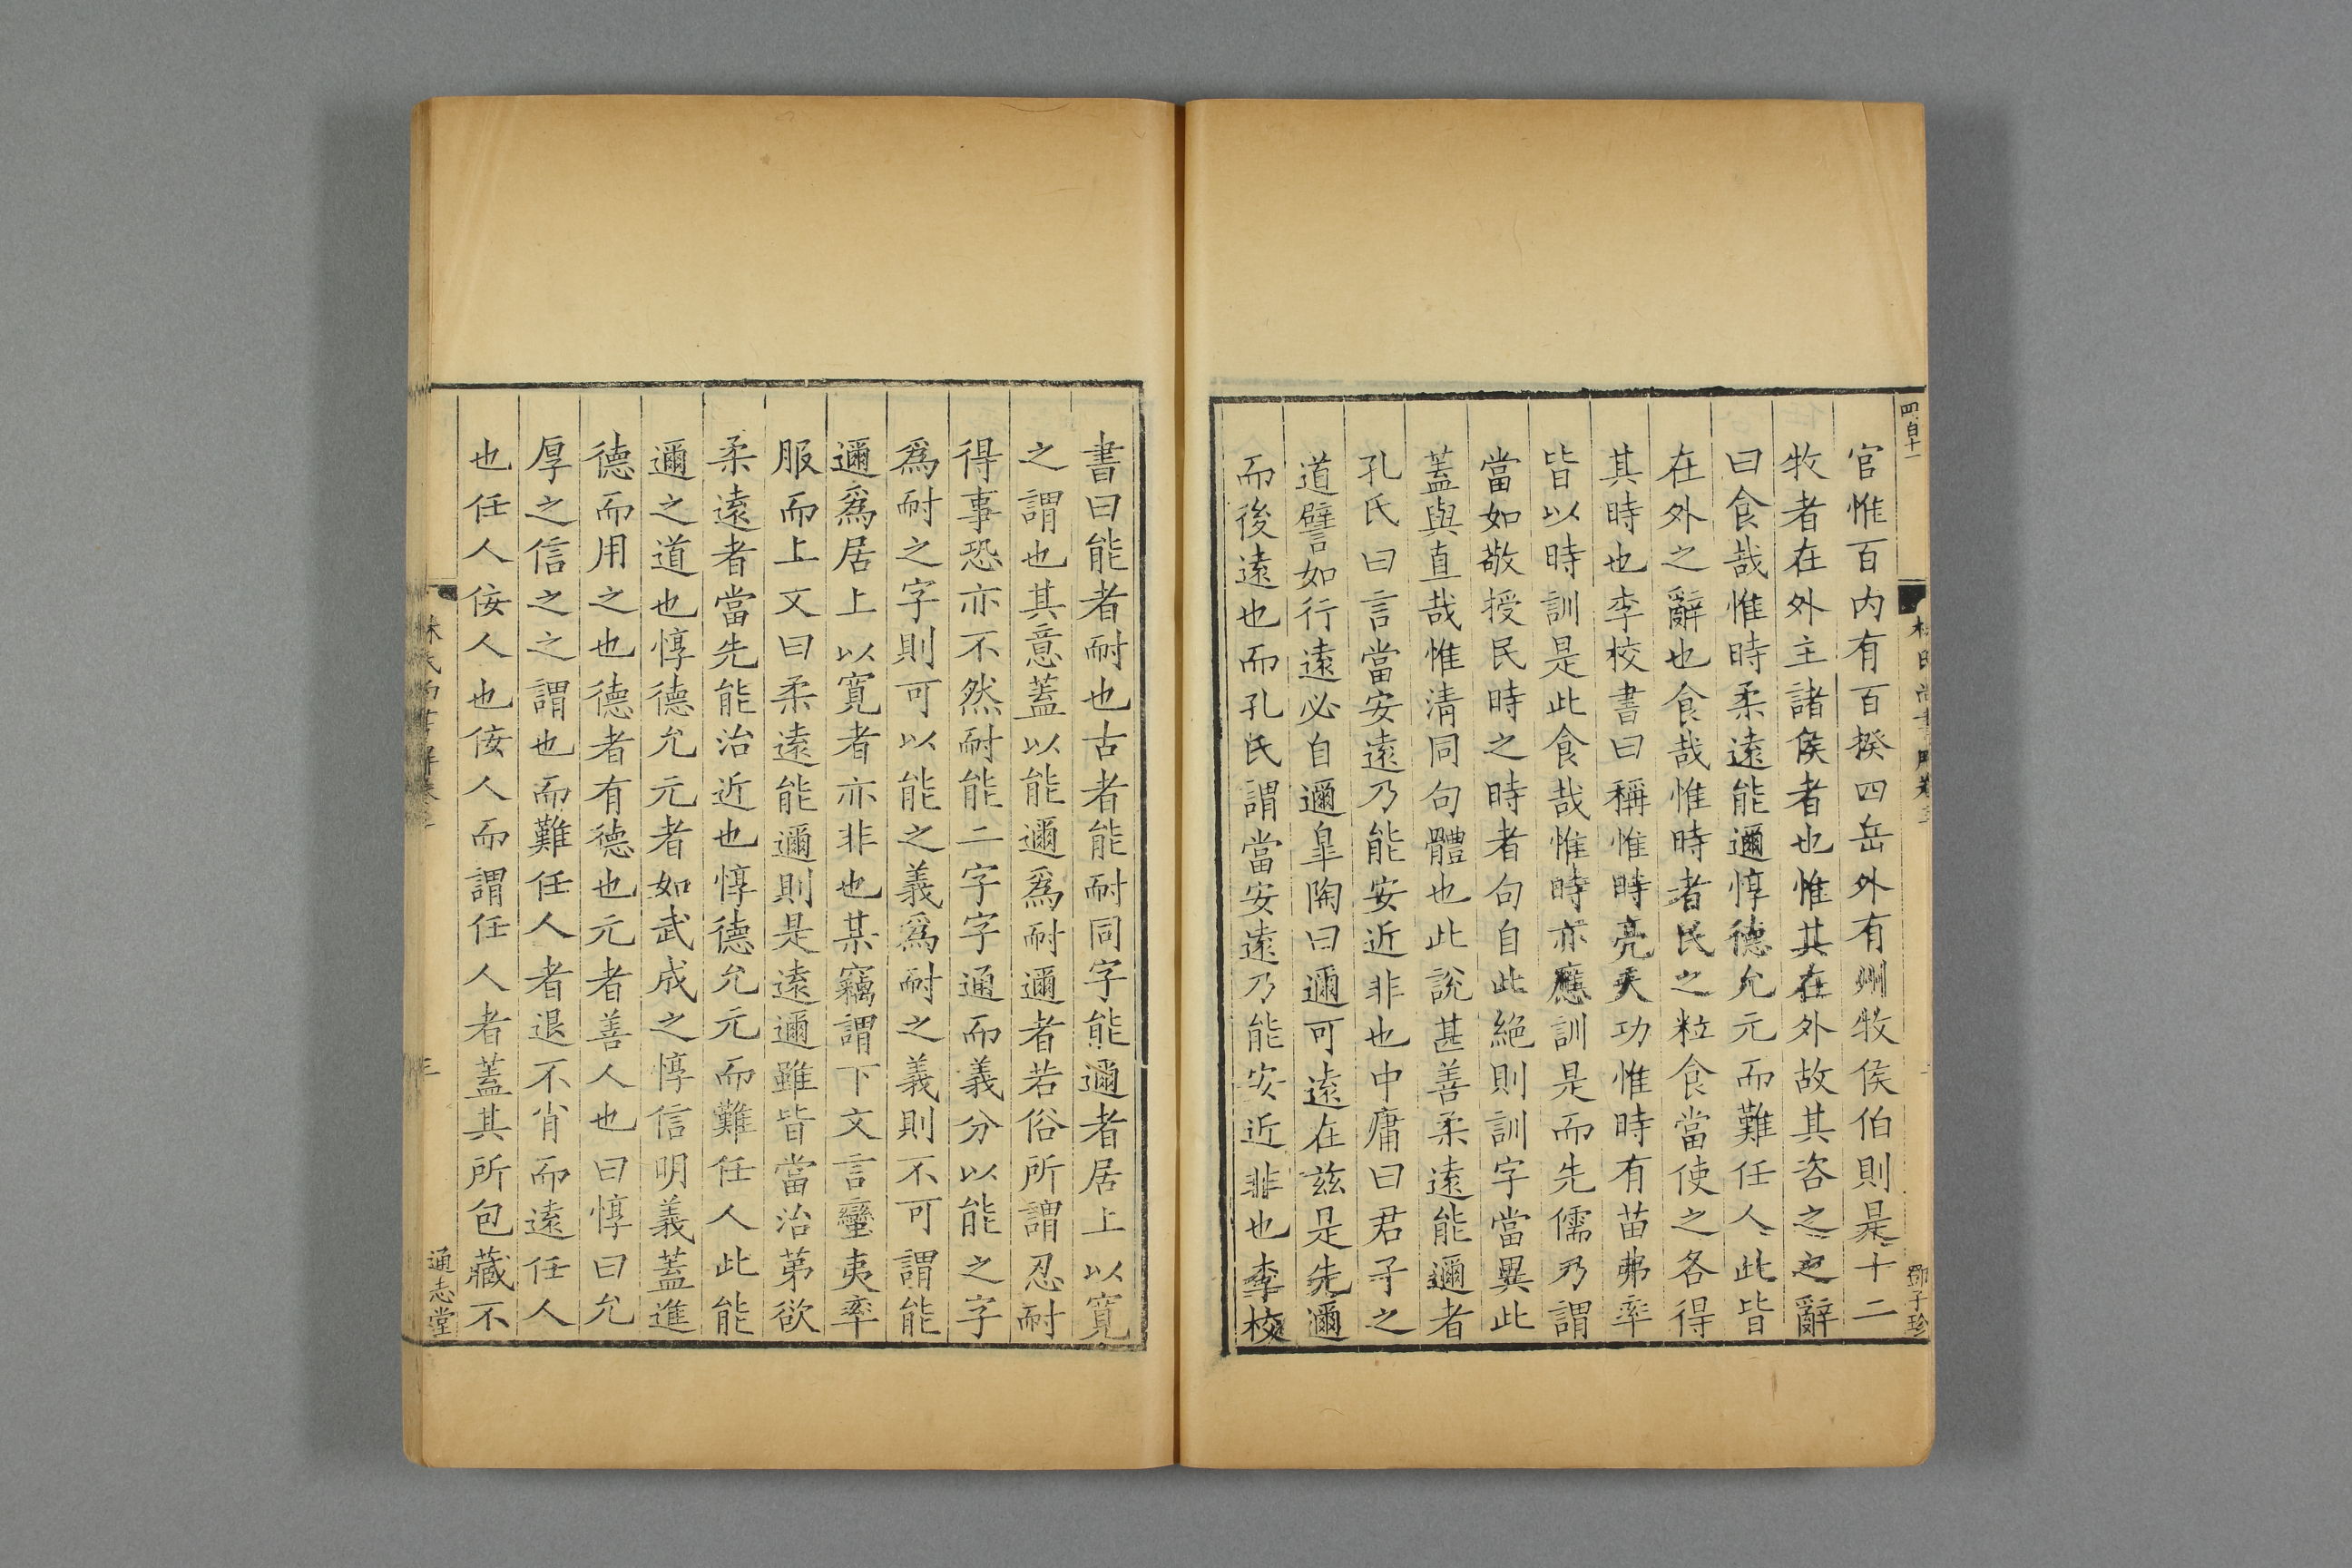 四百十一
鄧子珍
官惟百内有百揆四岳外有州牧侯伯則是十二
牧者在外主諸侯者也惟其在外故其咨之之辭
曰食哉惟時柔逺能邇惇德允元而難任人此皆
在外之辭也食哉惟時者民之粒食當使之各得
其時也李校書曰稱惟時亮天功惟時有苗弗率
皆以時訓是此食哉惟時亦應訓是而先儒乃謂
當如敬授民時之時者句自此絶則訓字當異此
蓋與直哉惟淸同句體也此說甚善柔逺能邇者
孔氏曰言當安逺乃能安近非也中庸曰君子之
道譬如行逺必自邇臯陶曰邇可逺在兹是先邇
而後逺也而孔氏謂當安逺乃能安近非也李校
書曰能者耐也古者能耐同字能邇者居上以寛
之謂也其意蓋以能邇爲耐邇者若俗所謂忍耐
得事恐亦不然耐能二字字通而義分以能之字
爲耐之字則可以能之義爲耐之義則不可謂能
邇爲居上以寛者亦非也某竊謂下文言蠻夷率
服而上文曰柔逺能邇則是逺邇雖皆當治第欲
柔逺者當先能治近也惇德允元而難任人此能
邇之道也惇德允元者如武成之惇信明義蓋進
德而用之也德者有德也元者善人也曰惇曰允
厚之信之之謂也而難任人者退不肖而逺任人
也任人佞人也佞人而謂任人者蓋其所包藏不
通志堂